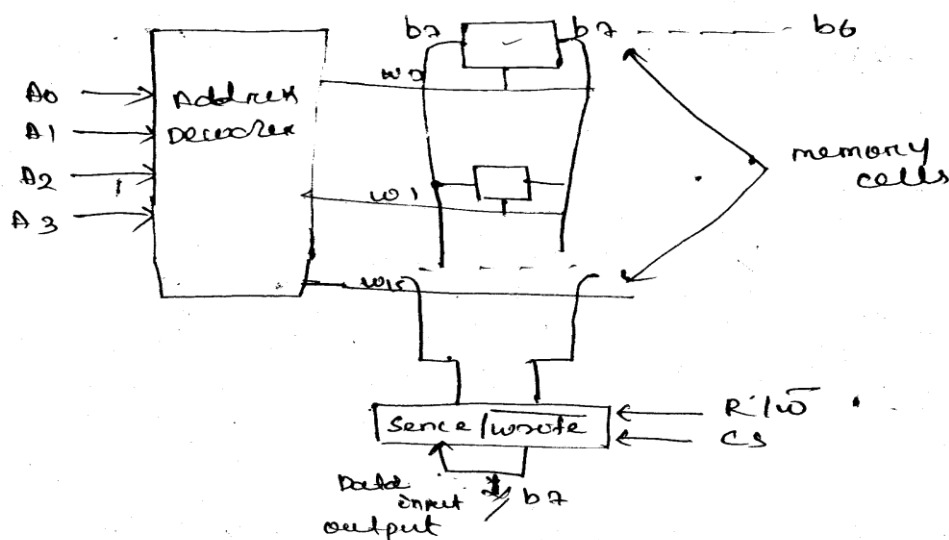 b7 b7 - - - - - b6
A0
A1
A2
A3
Address
Decoder
W0
W1
W15
memory
cells
Sence / w̅r̅o̅t̅e̅
R / w̅
CS
Data
input
output
b7